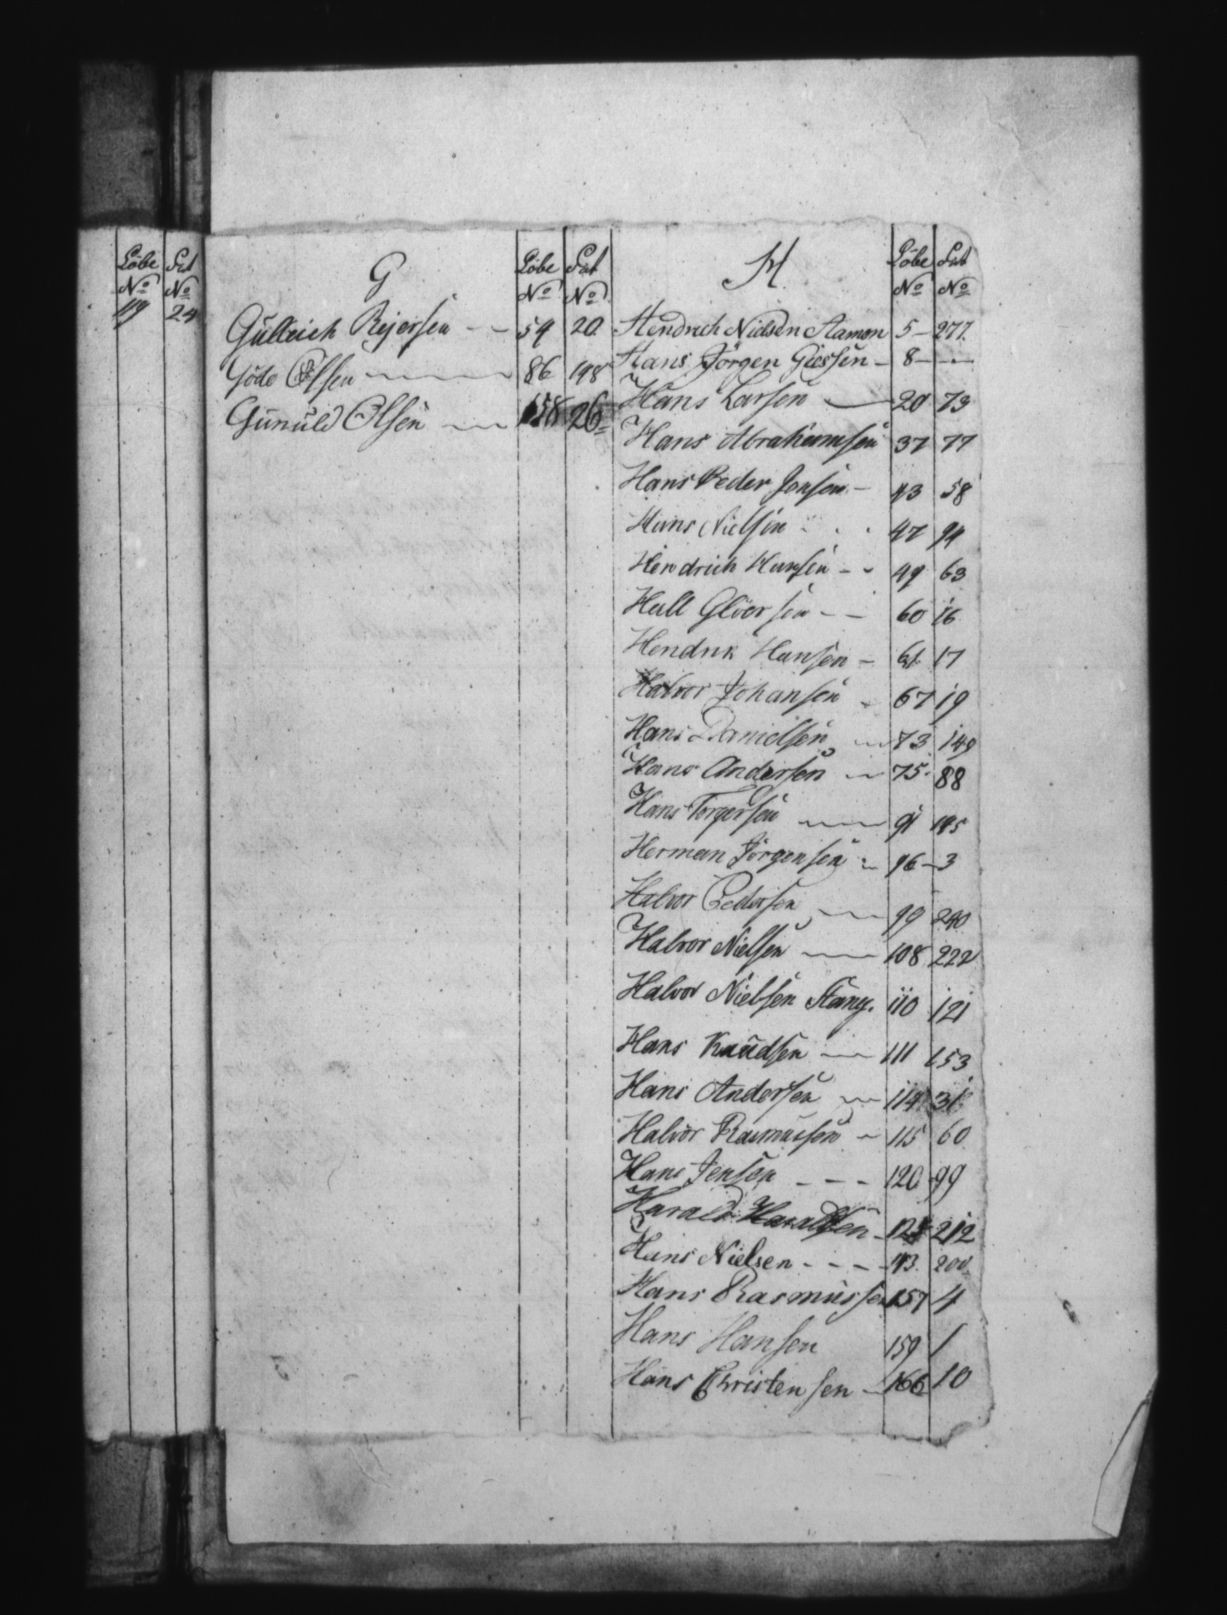 Löbe Fat
No No
119 24
G Löbe Fat
No No
Gulleich Rejersen 59 20
Göde Olsen 86 198
Gunuld Olsen 158 26
H Löbe Fat
No No
Hendrich Nielsen Aamon 5 277
Hans Jörgen Giessen 8
Hans Larsen 20 73
Hans Abrahamsen 37 77
Hans Peder Jensen 43 58
Hans Nielsen 47 94
Hendrich Hansen 49 63
Hall Gloersen 60 16
Hendrik Hansen 61 17
Halvor Johansen 67 19
Hans Danielsen 73 149
Hans Andersen 75 88
Hans Torgersen 91 195
Herman Jörgensen 96 3
Halvor Pedersen 99 240
Halvor Nielsen 108 222
Halvor Nielsen Stang. 110 121
Hans Knudsen 111 153
Hans Andersen 114 31
Halvor Rasmussen 115 60
Hans Jensen 120 99
Harald Haraldsen 212
Hans Nielsen 143 200
Hans Rasmussen 157 4
Hans Hansen 159 1
Hans Christensen 166 10